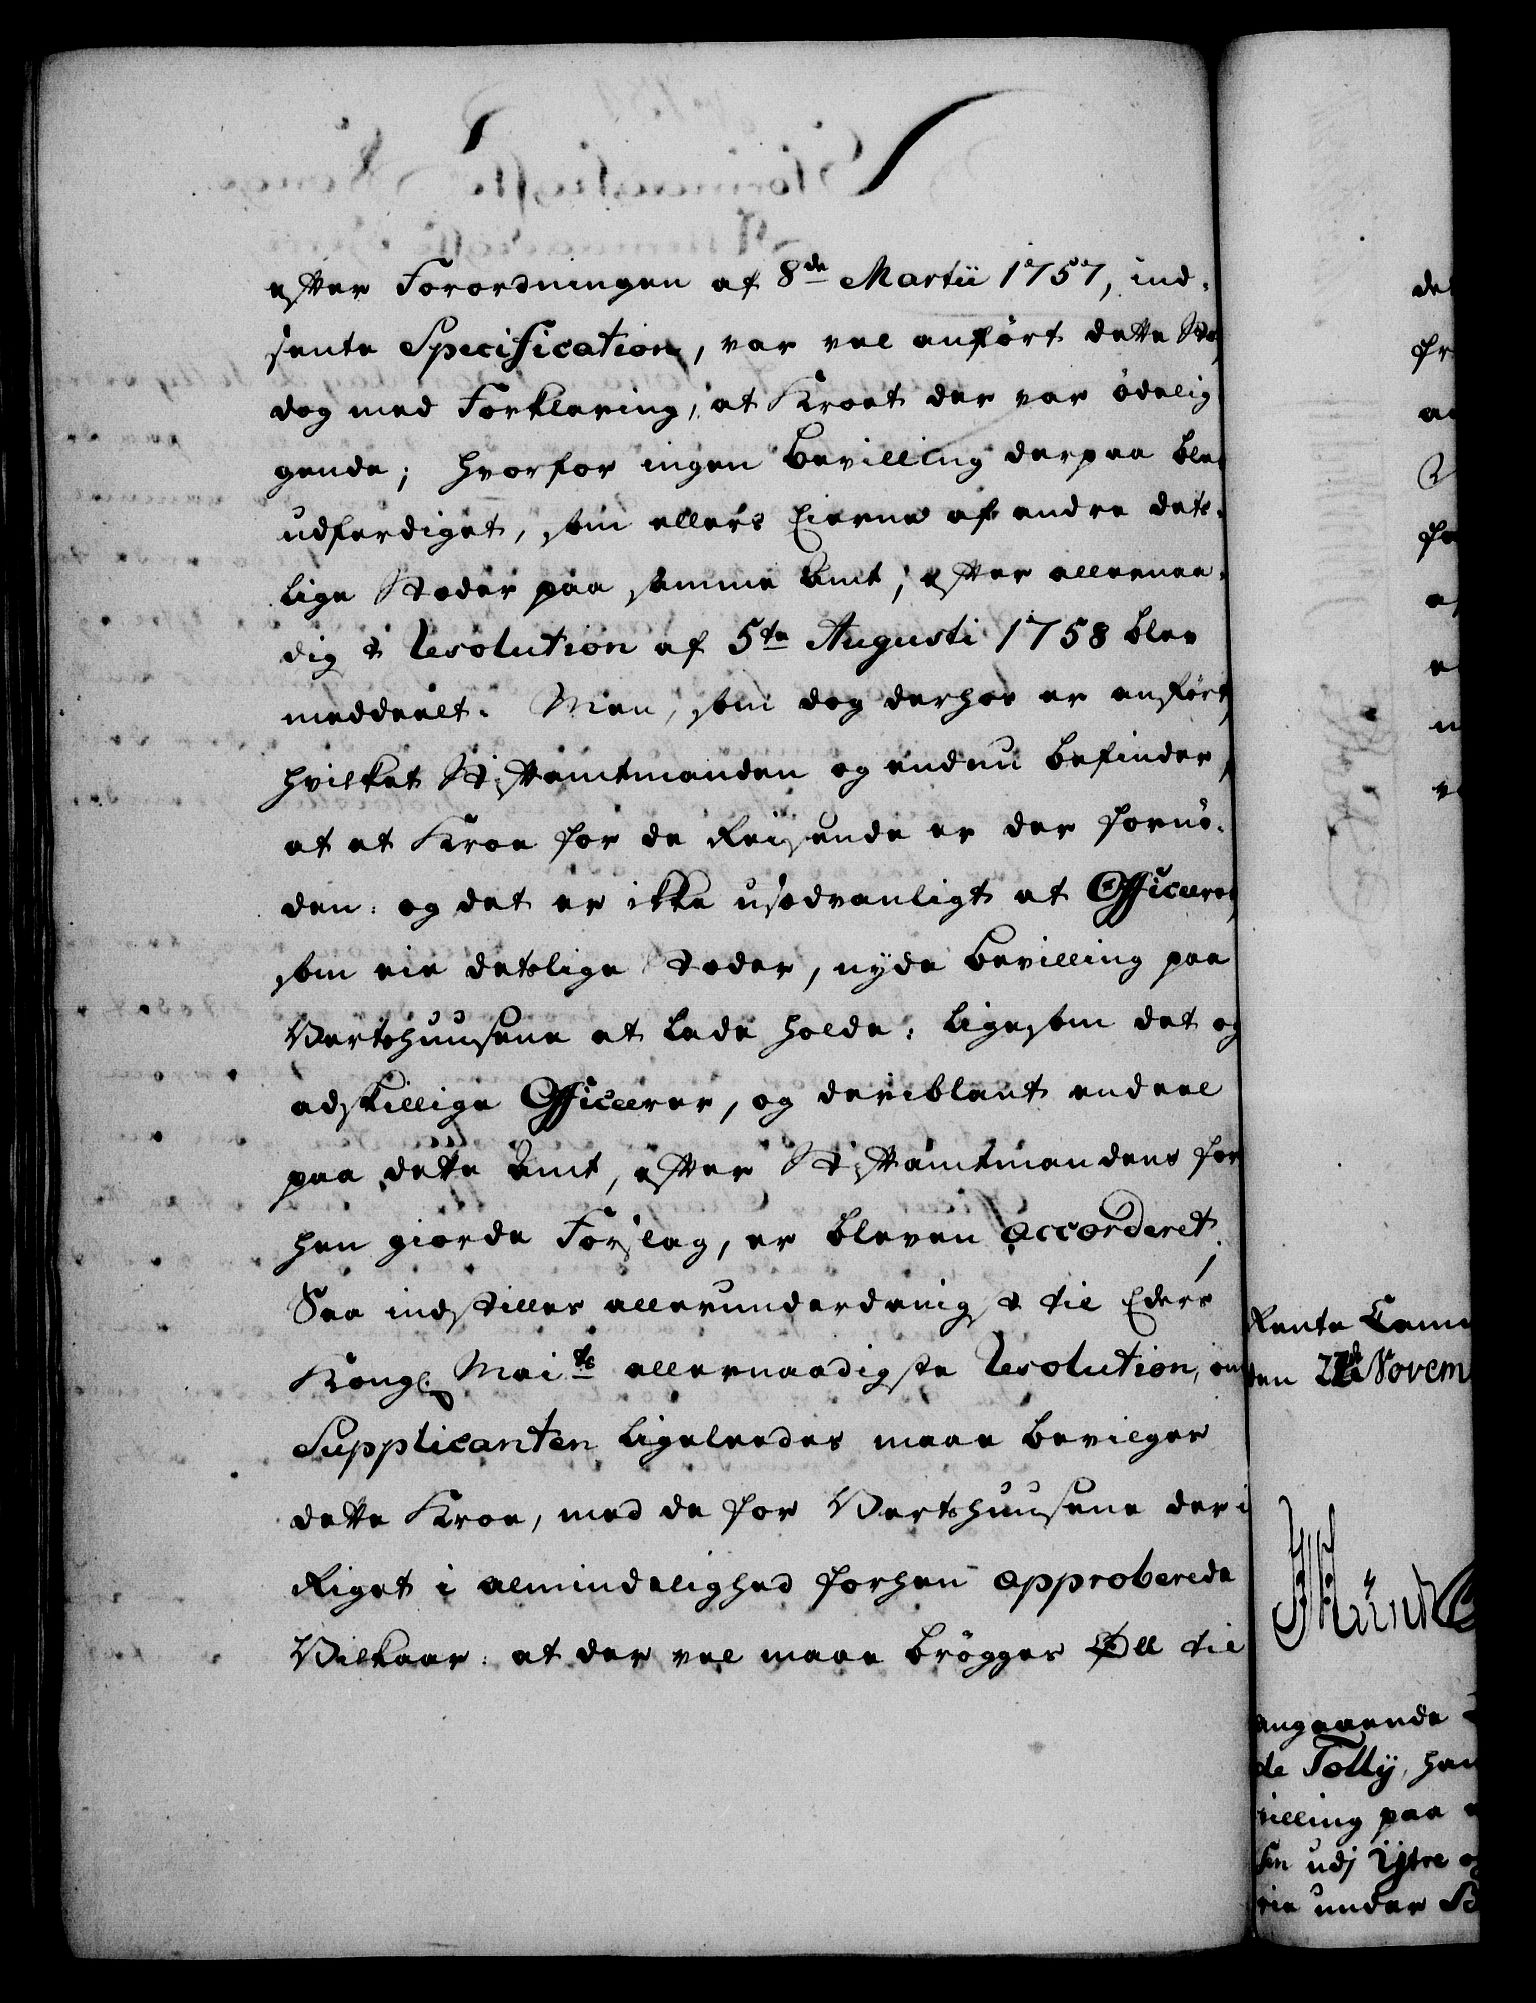 efter Forordningen af 8de Martii 1757, ind-
sente Specification, var vel anført dette Stæd
dog med Forklaring, at Kroet der var ødelig-
gende; hvorfor ingen Bevilling derpaa blev
udferdiget, som ellers Eierne af andre des-
lige Stæder paa samme Amt, efter allernaa-
digst Resolution af 5te Augusti 1758 blev
meddeelt. Men, som dog derhos er anført,
hvilket Stiftamtmanden og endnu befinder,
at et Kroe for de Reisende er der fornø-
den: og det er ikke usædvanligt at Officerer,
som eie deslige Stæder, nyde Bevilling paa
Vertshuusene at lade holde: ligesom det og
adskillige Officerer, og deriblant endeel
paa dette Amt, efter Stiftamtmandens for-
hen giorde Forslag, er bleven accorderet;
Saa indstilles allerunderdanigst til Eders
Kongl. Mai:ts allernaadigste Resolution, om
Supplicanten ligeleedes maae bevilges
dette Kroe, med de for Vertshuusene der i
Riget i almindelighed forhen approberede
Vilkaar: at der vel maae brøgges Øll til
det
Rente Cam
den 22de Novem
angaaende
de Tolly, han
villing paa
udj Ytre
rie under